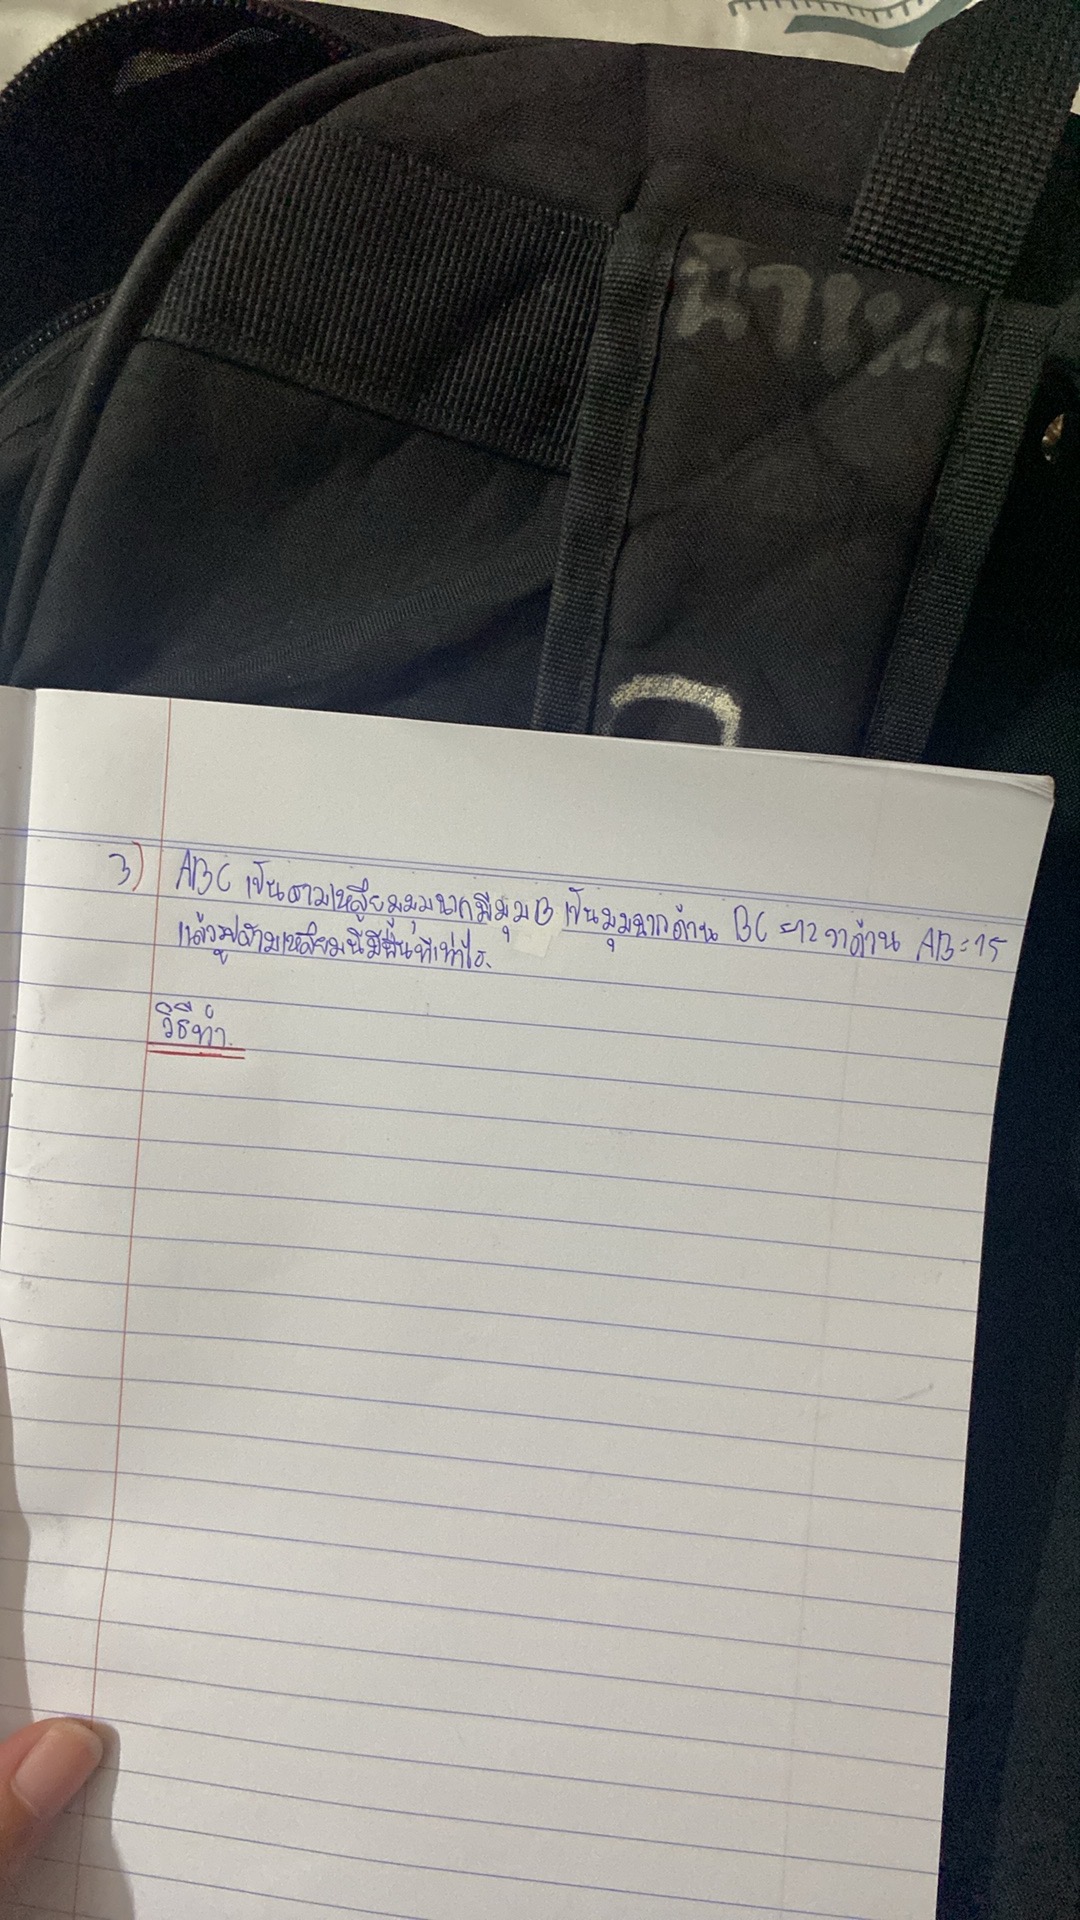 3) ABC เป็นสามเหลี่ยมมุมฉากมีมุม B เป็นมุมฉากด้าน BC =12 วาด้าน AB=15
แล้วรูปสามเหลี่ยมนี้มีพื้นที่เท่าไร.
วิธีทำ.